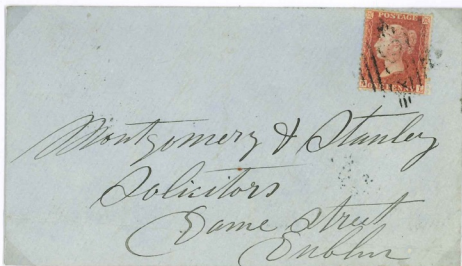 POSTAGE
Montgomery & Stanley
Solicitors
Dame Street
Dublin